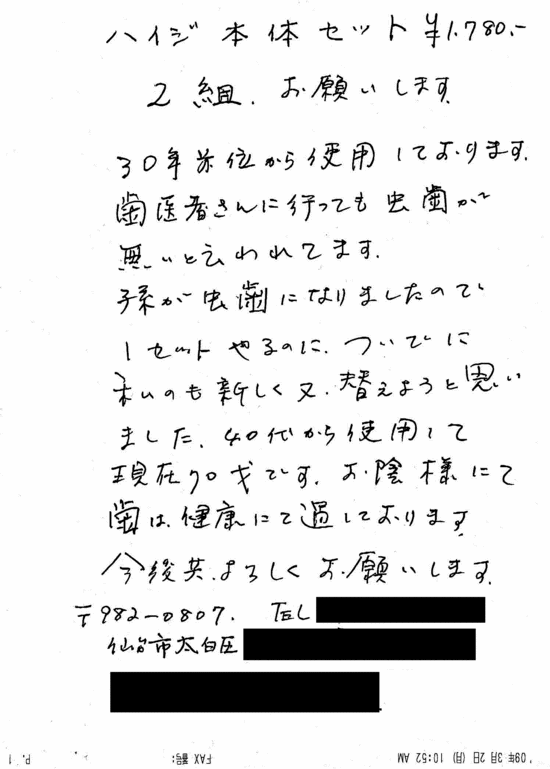 ハイジ 本体セット ¥1.780.-
2組. お願いします.
30年近位から使用しております.
歯医者さんに行っても虫歯が
無いと云われてます.
孫が虫歯になりましたので
1セットやるのに、ついでに
私のも新しく又、替えようと思い
ました、40代から使用して
現在70才です. お陰様にて
歯は、健康にて過しております
今後共、よろしくお願いします.
〒982-0807. TEL
仙台市太白区
'09年3月2日(月) 10:52 AM FAX番号: P. 1